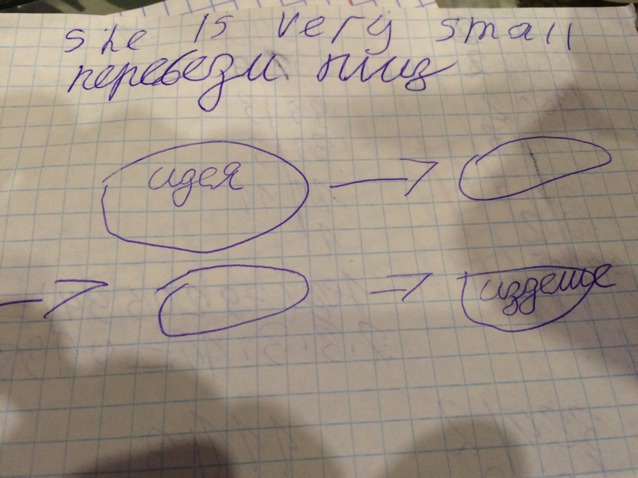 she is very small
переведи пиц
идея
изделие